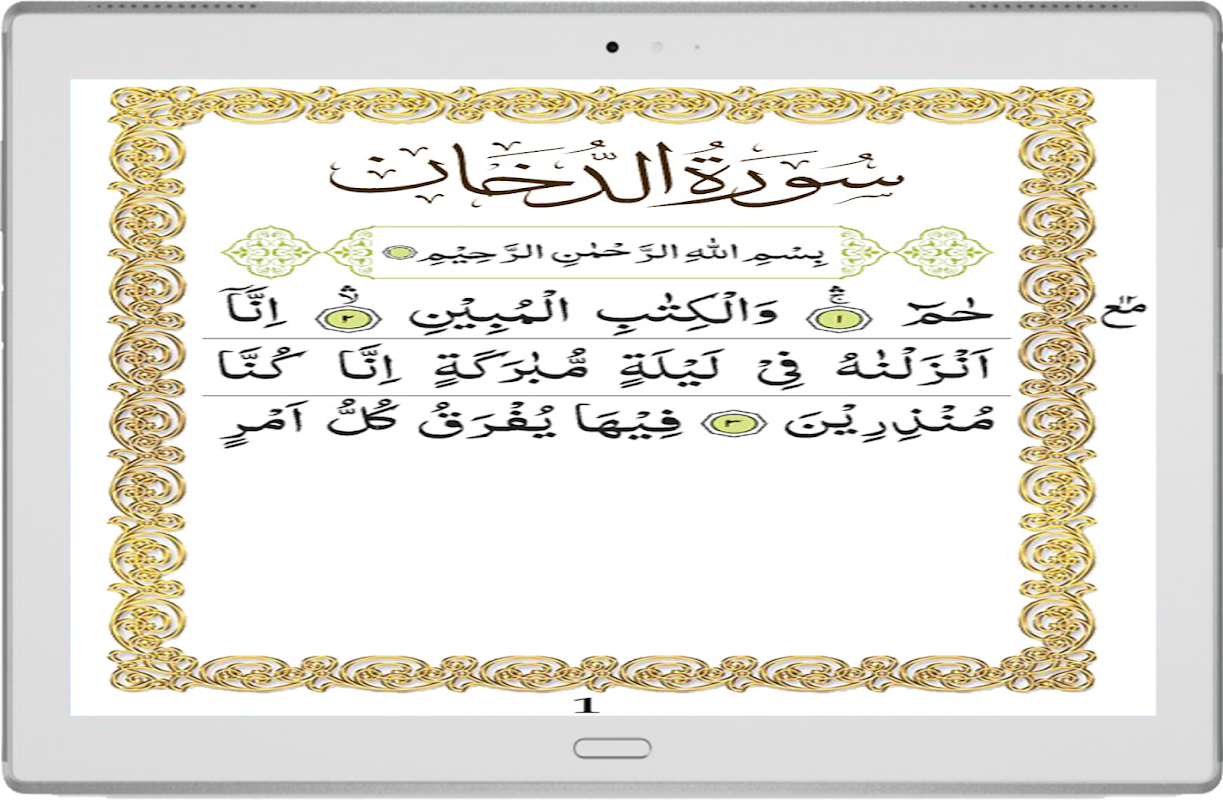 سُوْرَةُ الدُّخَانِ
بِسْمِ اللّٰهِ الرَّحْمٰنِ الرَّحِيْمِ
حٰمٓ ۚۛ ١ وَالْكِتٰبِ الْمُبِيْنِ ۙۛ ٢ اِنَّاۤ
اَنْزَلْنٰهُ فِيْ لَيْلَةٍ مُّبٰرَكَةٍ اِنَّا كُنَّا
مُنْذِرِيْنَ ٣ فِيْهَا يُفْرَقُ كُلُّ اَمْرٍ
1